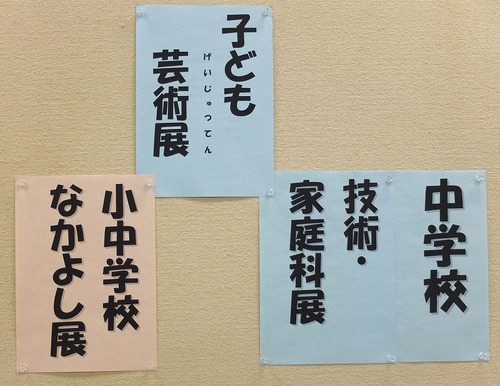 子ども
げいじゅつてん
芸術展
中学校
技術・
家庭科展
小中学校
なかよし展